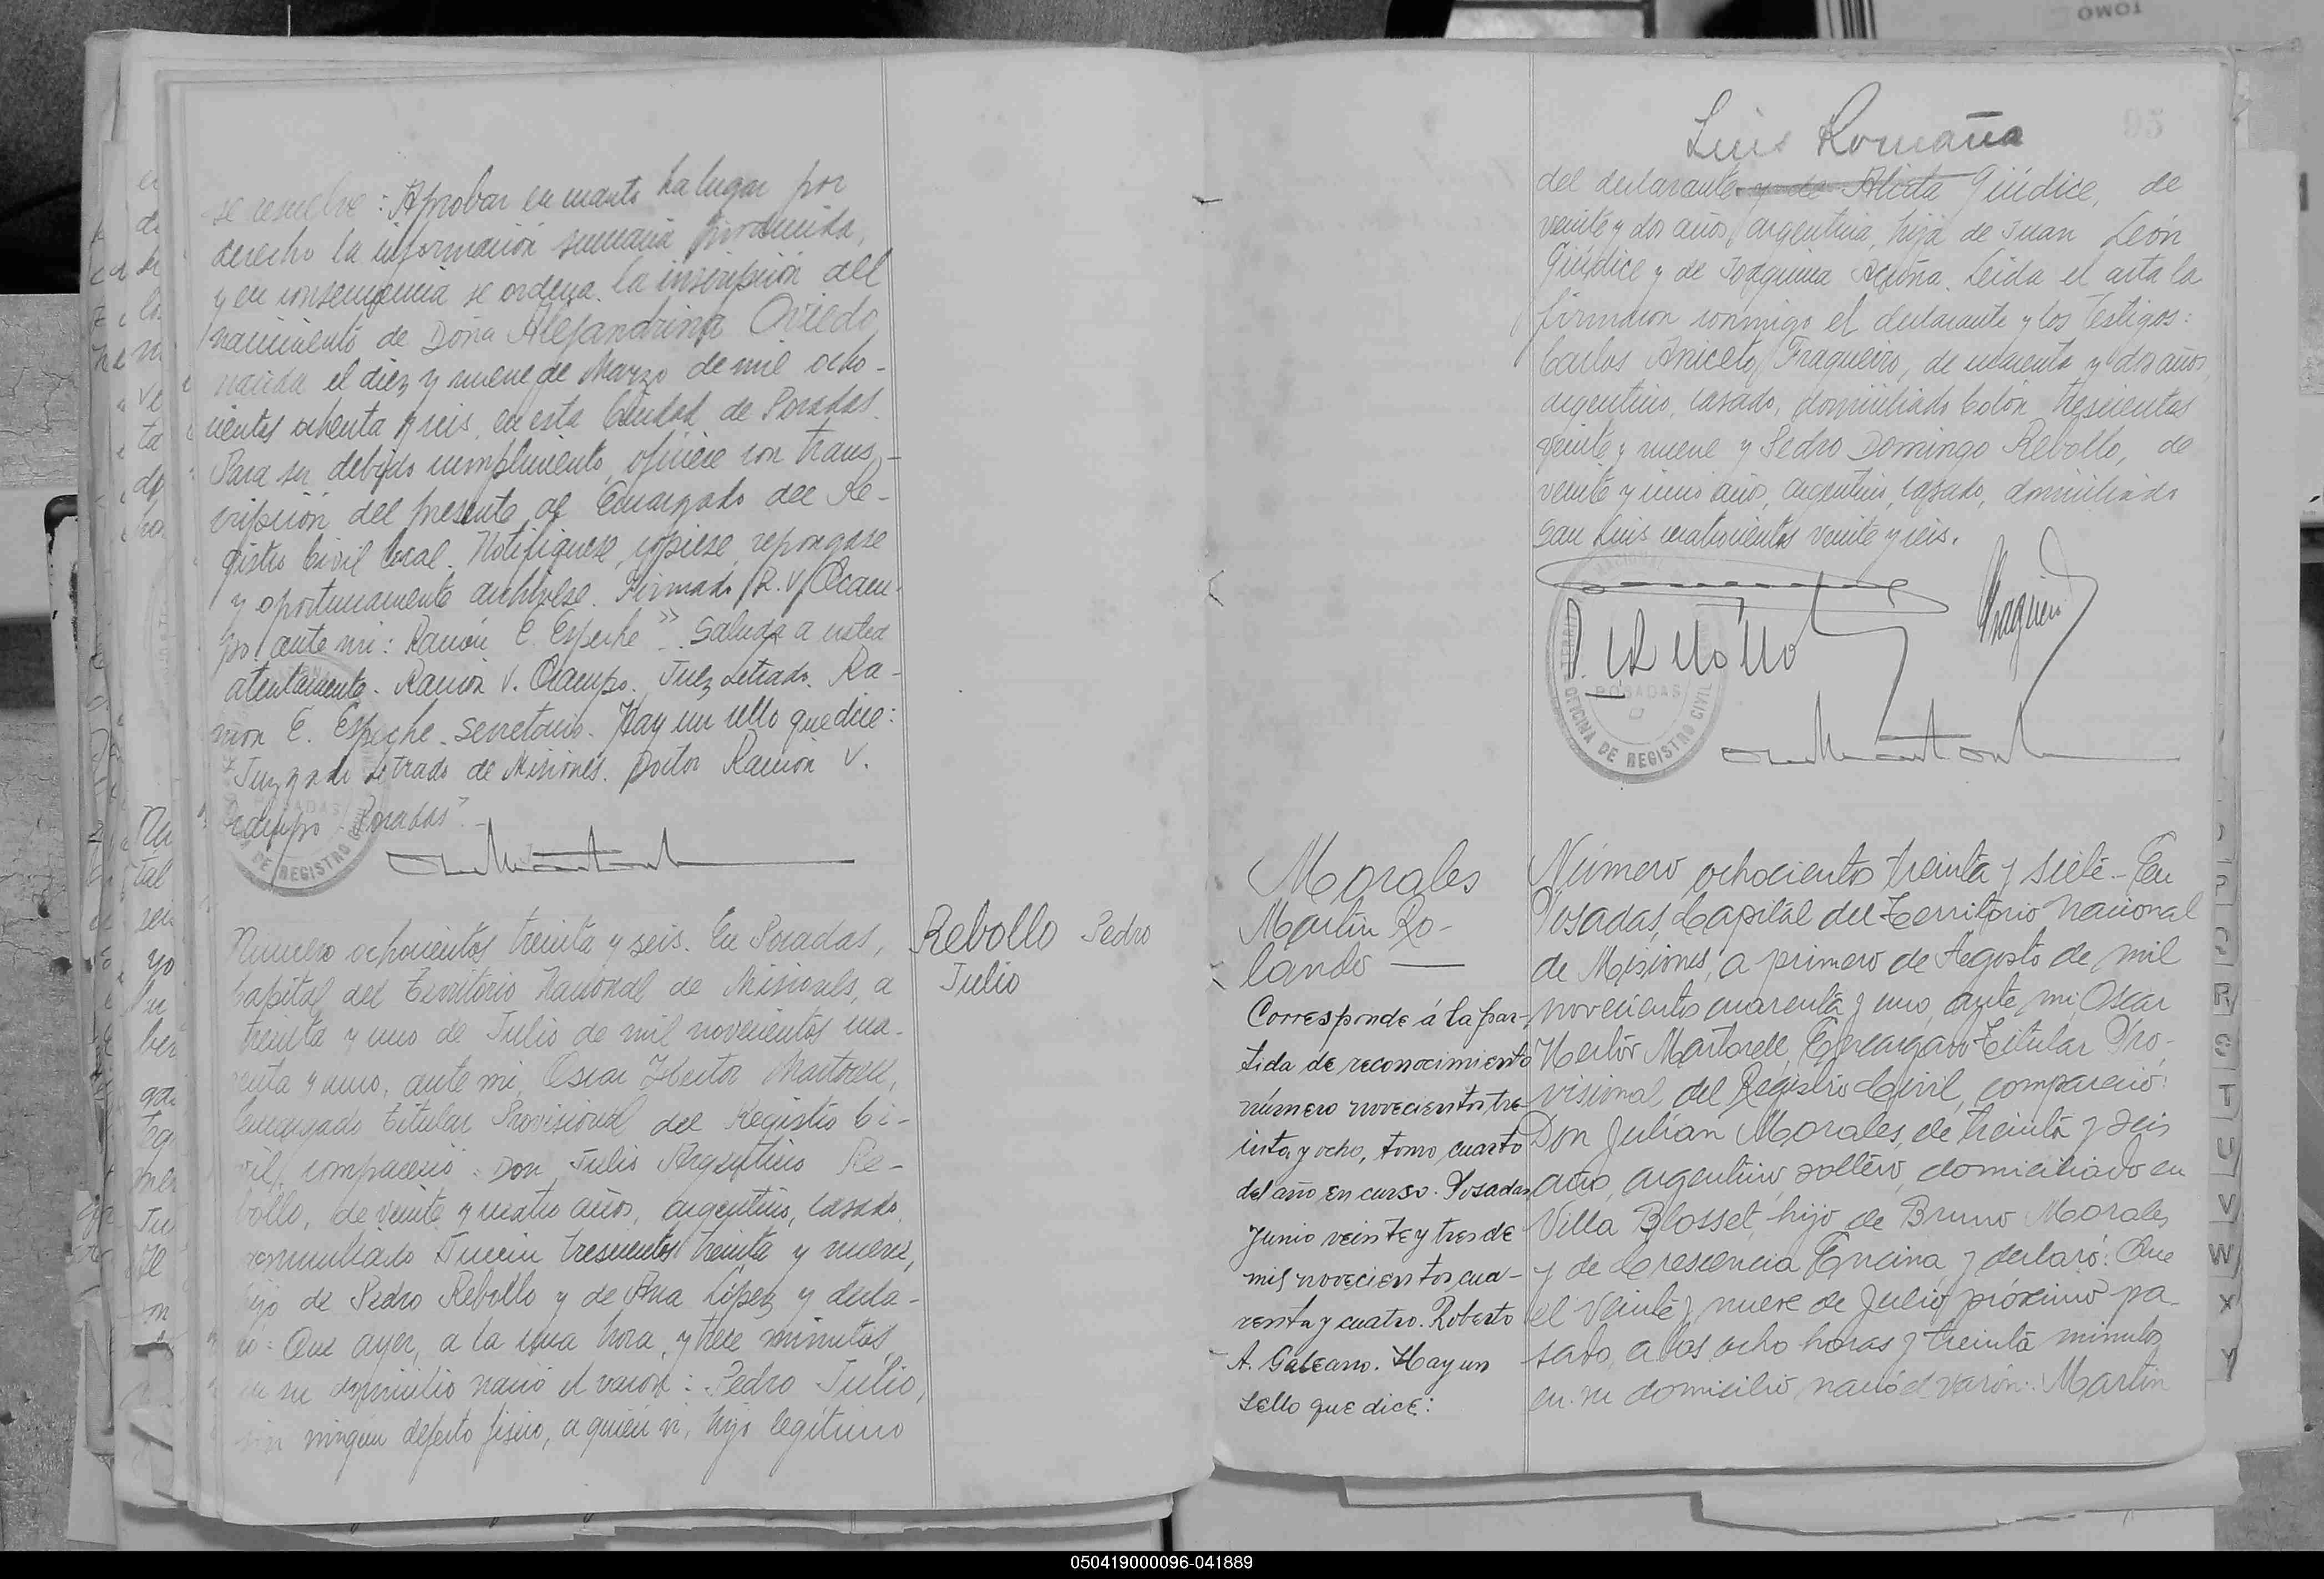 se resuelve: Aprobar en cuanto ha lugar por
derecho la información sumaria producida,
y en consecuencia se ordena la inscripción del
nacimiento de Doña Alejandrina Oviedo,
nacida el diez y nueve de Marzo de mil ocho-
cientos ochenta y seis, en esta Ciudad de Posadas.
Para su debido cumplimiento, ofíciese con trans-
cripción del presente al Encargado del Re-
gistro Civil local. Notifíquese, cópiese, repóngase
y oportunamente archívese. Firmado R. V. Ocam-
po. ante mi: Ramón E. Espeche". Saluda a usted
atentamente. Ramón V. Ocampo. Juez Letrado. Ra-
mon E. Espeche. Secretario. Hay un sello que dice:
Juzgado Letrado de Misiones. Doctor Ramón V.
Ocampo. Posadas".
DE REGISTRO
Número ochocientos treinta y seis. En Posadas,
Capital del Territorio Nacional de Misiones, a
treinta y uno de Julio de mil novecientos cua-
renta y uno, ante mi, Oscar Hector Martorell,
Encargado Titular Provisional del Registro Ci-
vil, compareció: Don Julio Argentino Re-
bollo, de veinte y cuatro años, argentino, casado,
domiciliado Junin trescientos treinta y nueve,
hijo de Pedro Rebollo y de Ana López y decla-
ró: Que ayer, a la una hora y trece minutos,
en su domicilio nació el varón: Pedro Julio,
sin ningún defecto físico, a quién vi, hijo legítimo
Rebollo Pedro
Julio
95
Luis Romaña
del declarante y de Alcida Giúdice, de
veinte y dos años, argentina, hija de Juan León
Giúdice y de Joaquina Acuña. Leida el acta la
firmaron conmigo el declarante y los testigos:
Carlos Aniceto Fragueiro, de cuarenta y dos años,
argentino, casado, domiciliado Colón trescientos
veinte y nueve y Pedro Domingo Rebollo, de
veinte y cinco años, argentino, casado, domiciliado
San Luis cuatrocientos veinte y seis.
P. Rebollo
POSADAS
OFICINA DE REGISTRO CIVIL
Morales
Martín Ro-
lando
Corresponde á la par-
tida de reconocimiento
número novecientos tre-
inta y ocho, tomo cuarto
del año en curso. Posadas
Junio veinte y tres de
mil novecientos cua-
renta y cuatro. Roberto
A. Galeano. Hay un
sello que dice:
Número ochocientos treinta y siete.- En
Posadas, Capital del Territorio Nacional
de Misiones, a primero de Agosto de mil
novecientos cuarenta y uno, ante mi, Oscar
Hector Martorell, Encargado Titular Pro-
visional del Registro Civil, compareció:
Don Julián Morales, de treinta y seis
años, argentino, soltero, domiciliado en
Villa Blosset, hijo de Bruno Morales
y de Crescencia Encina, y declaró: Que
el veinte y nueve de Julio próximo pa-
sado, a las ocho horas y treinta minutos
en su domicilio nació el varón: Martín
P
Q
R
S
T
U
V
W
X
Y
TOMO
050419000096-041889